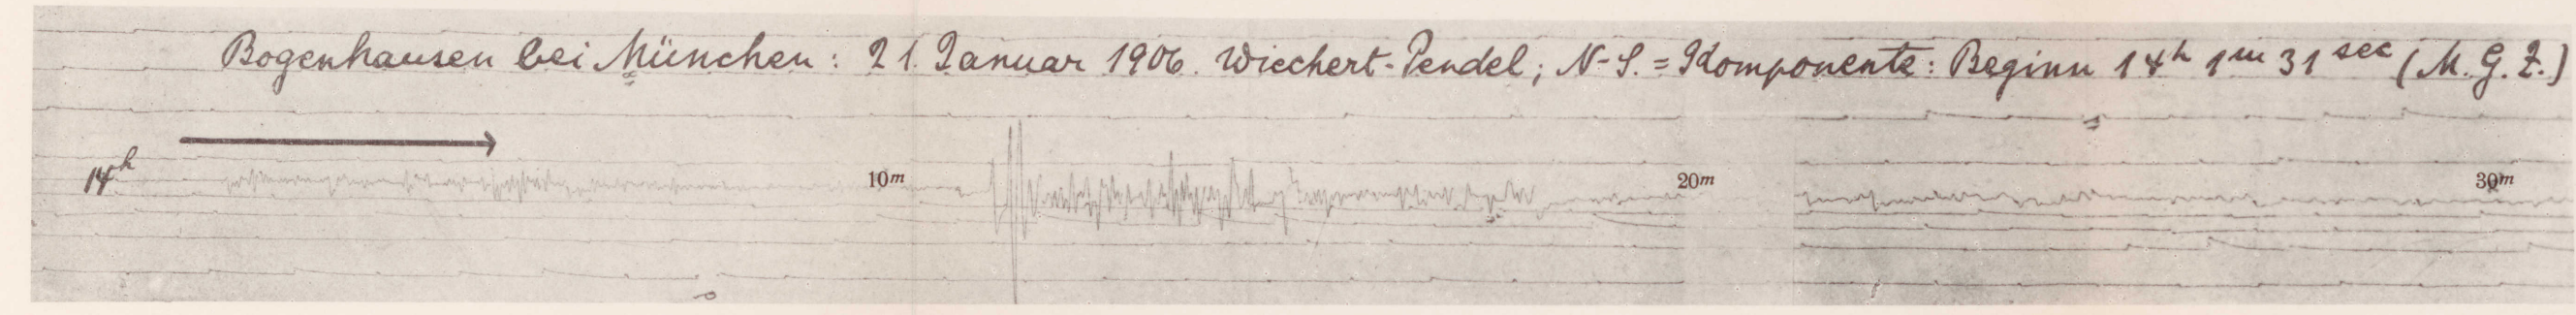 Bogenhausen bei München: 21. Januar 1906. Wiechert-Pendel; N-S.=Komponente: Beginn 14h 1m 31sec (M. G. Z.)
14h
10m 20m 30m